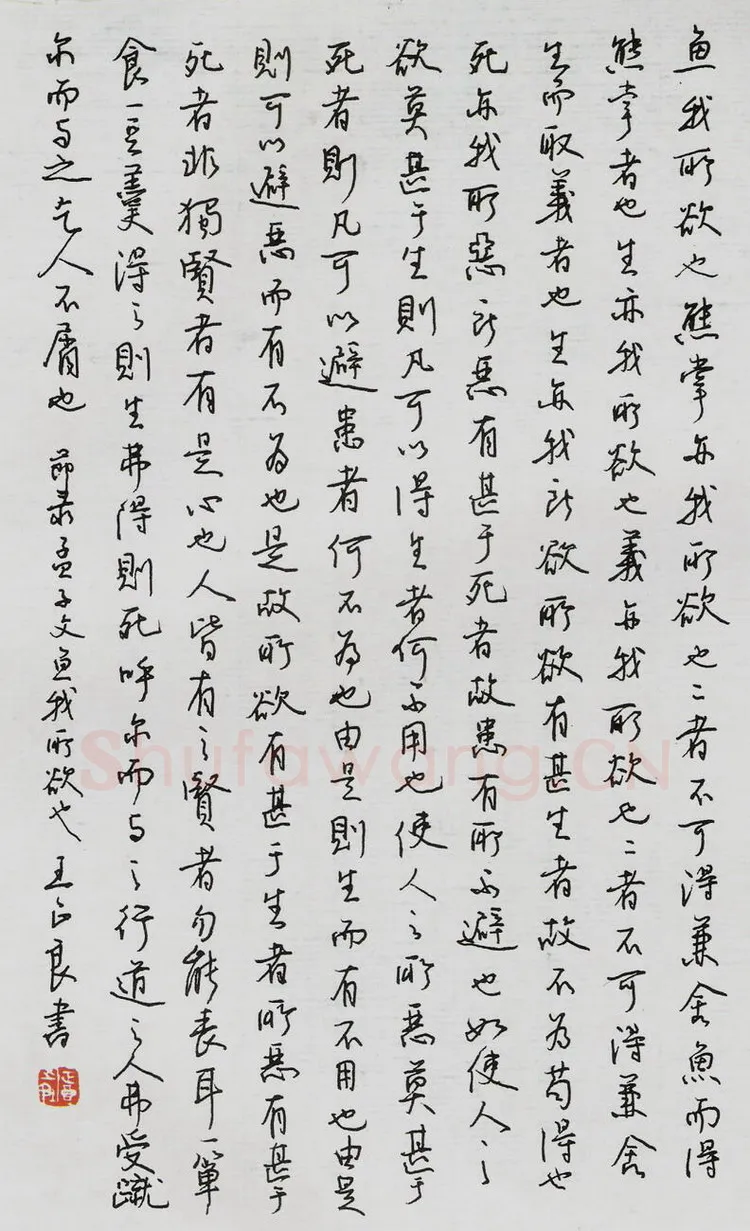 魚我所欲也熊掌亦我所欲也二者不可得兼舍魚而得
熊掌者也生亦我所欲也義亦我所欲也二者不可得兼舍
生而取義者也生亦我所欲所欲有甚生者故不為苟得也
死亦我所惡所惡有甚于死者故患有所不避也如使人之
欲莫甚于生則凡可以得生者何不用也使人之所惡莫甚于
死者則凡可以避患者何不為也由是則生而有不用也由是
則可以避惡而有不為也是故所欲有甚于生者所惡有甚于
死者非獨賢者有是心也人皆有之賢者勿能喪耳一簞
食一豆羹得之則生弗得則死呼尔而与之行道之人弗受蹴
尔而与之乞人不屑也 節录孟子文魚我所欲也 王正良書
Shufawang.CN